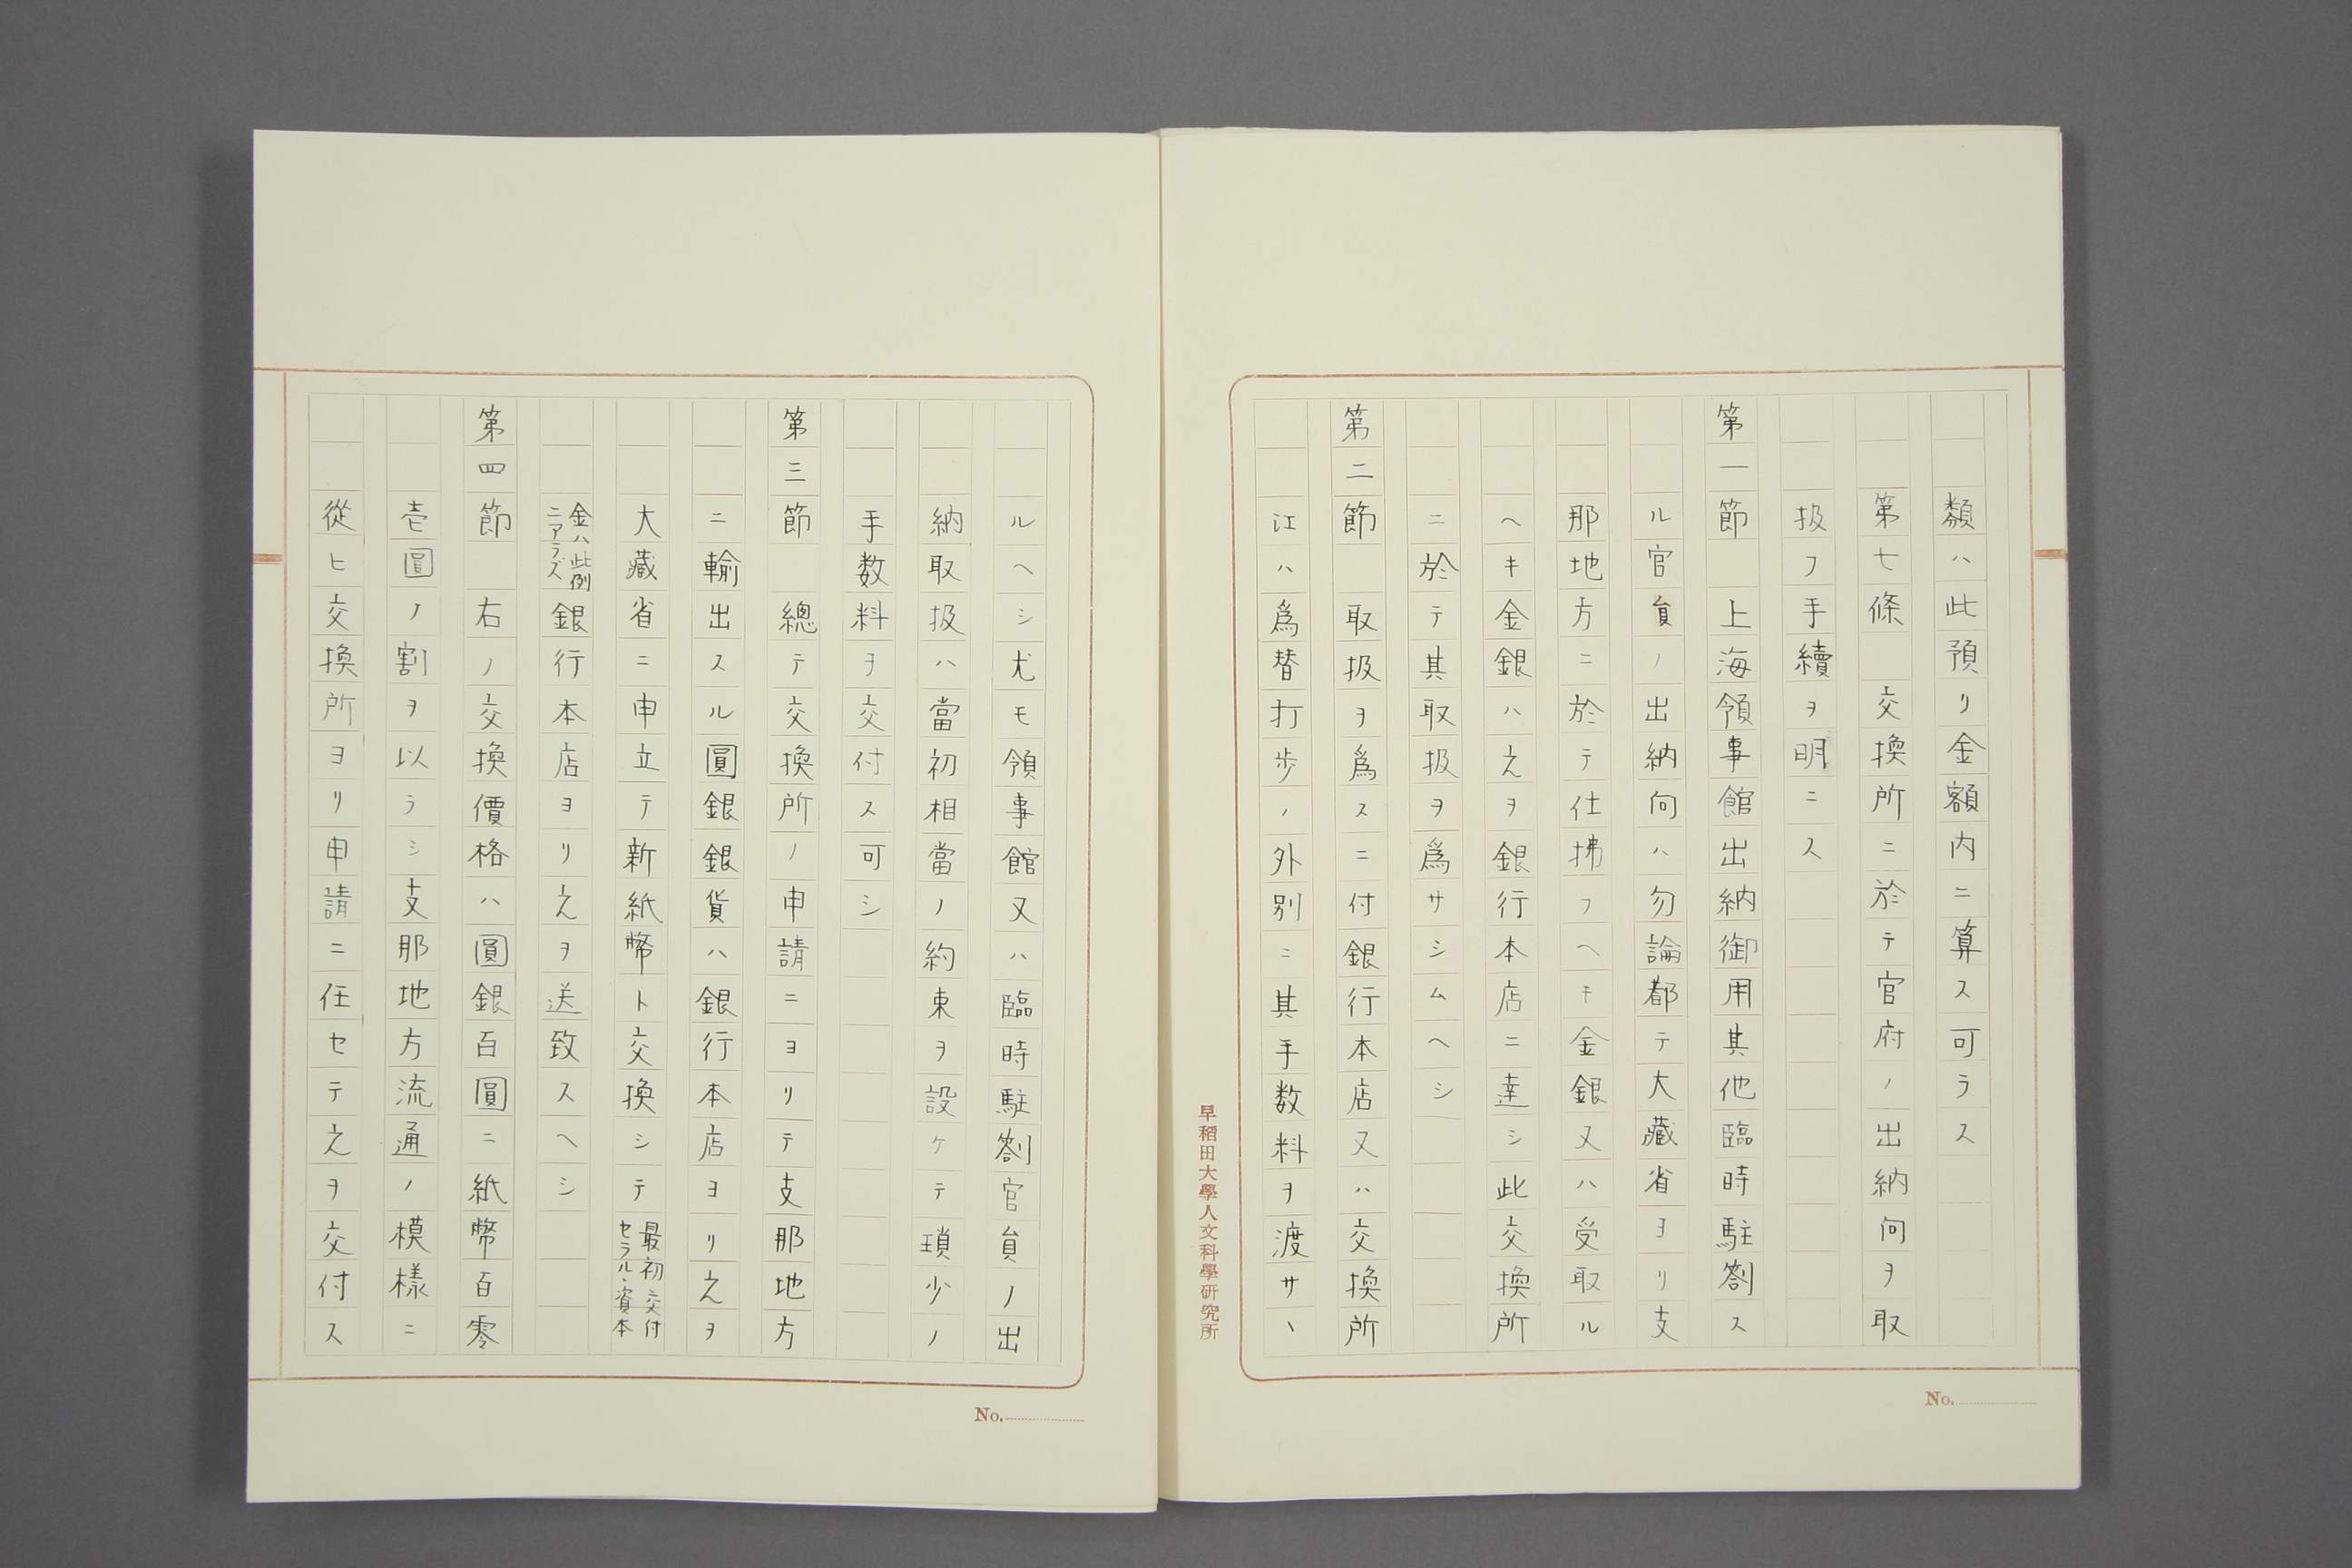 類ハ此預リ金額内ニ算ス可ラス
第七條　交換所ニ於テ官府ノ出納向ヲ取
扱フ手續ヲ明ニス
第一節　上海領事館出納御用其他臨時駐劄ス
ル官員ノ出納向ハ勿論都テ大藏省ヨリ支
那地方ニ於テ仕拂フヘキ金銀又ハ受取ル
ヘキ金銀ハ之ヲ銀行本店ニ達シ此交換所
ニ於テ其取扱ヲ爲サシムヘシ
第二節　取扱ヲ爲スニ付銀行本店又ハ交換所
江ハ爲替打歩ノ外別ニ其手数料ヲ渡サヽ
早稻田大學人文科學研究所
No.
ルヘシ尤モ領事館又ハ臨時駐劄官員ノ出
納取扱ハ當初相當ノ約束ヲ設ケテ瑣少ノ
手数料ヲ交付ス可シ
第三節　總テ交換所ノ申請ニヨリテ支那地方
ニ輸出スル圓銀銀貨ハ銀行本店ヨリ之ヲ
大藏省ニ申立テ新紙幣ト交換シテ最初交付セラルヽ資本
金ハ此例ニアラズ銀行本店ヨリ之ヲ送致スヘシ
第四節　右ノ交換價格ハ圓銀百圓ニ紙幣百零
壱圓ノ割ヲ以ラシ支那地方流通ノ模樣ニ
從ヒ交換所ヨリ申請ニ任セテ之ヲ交付ス
No.